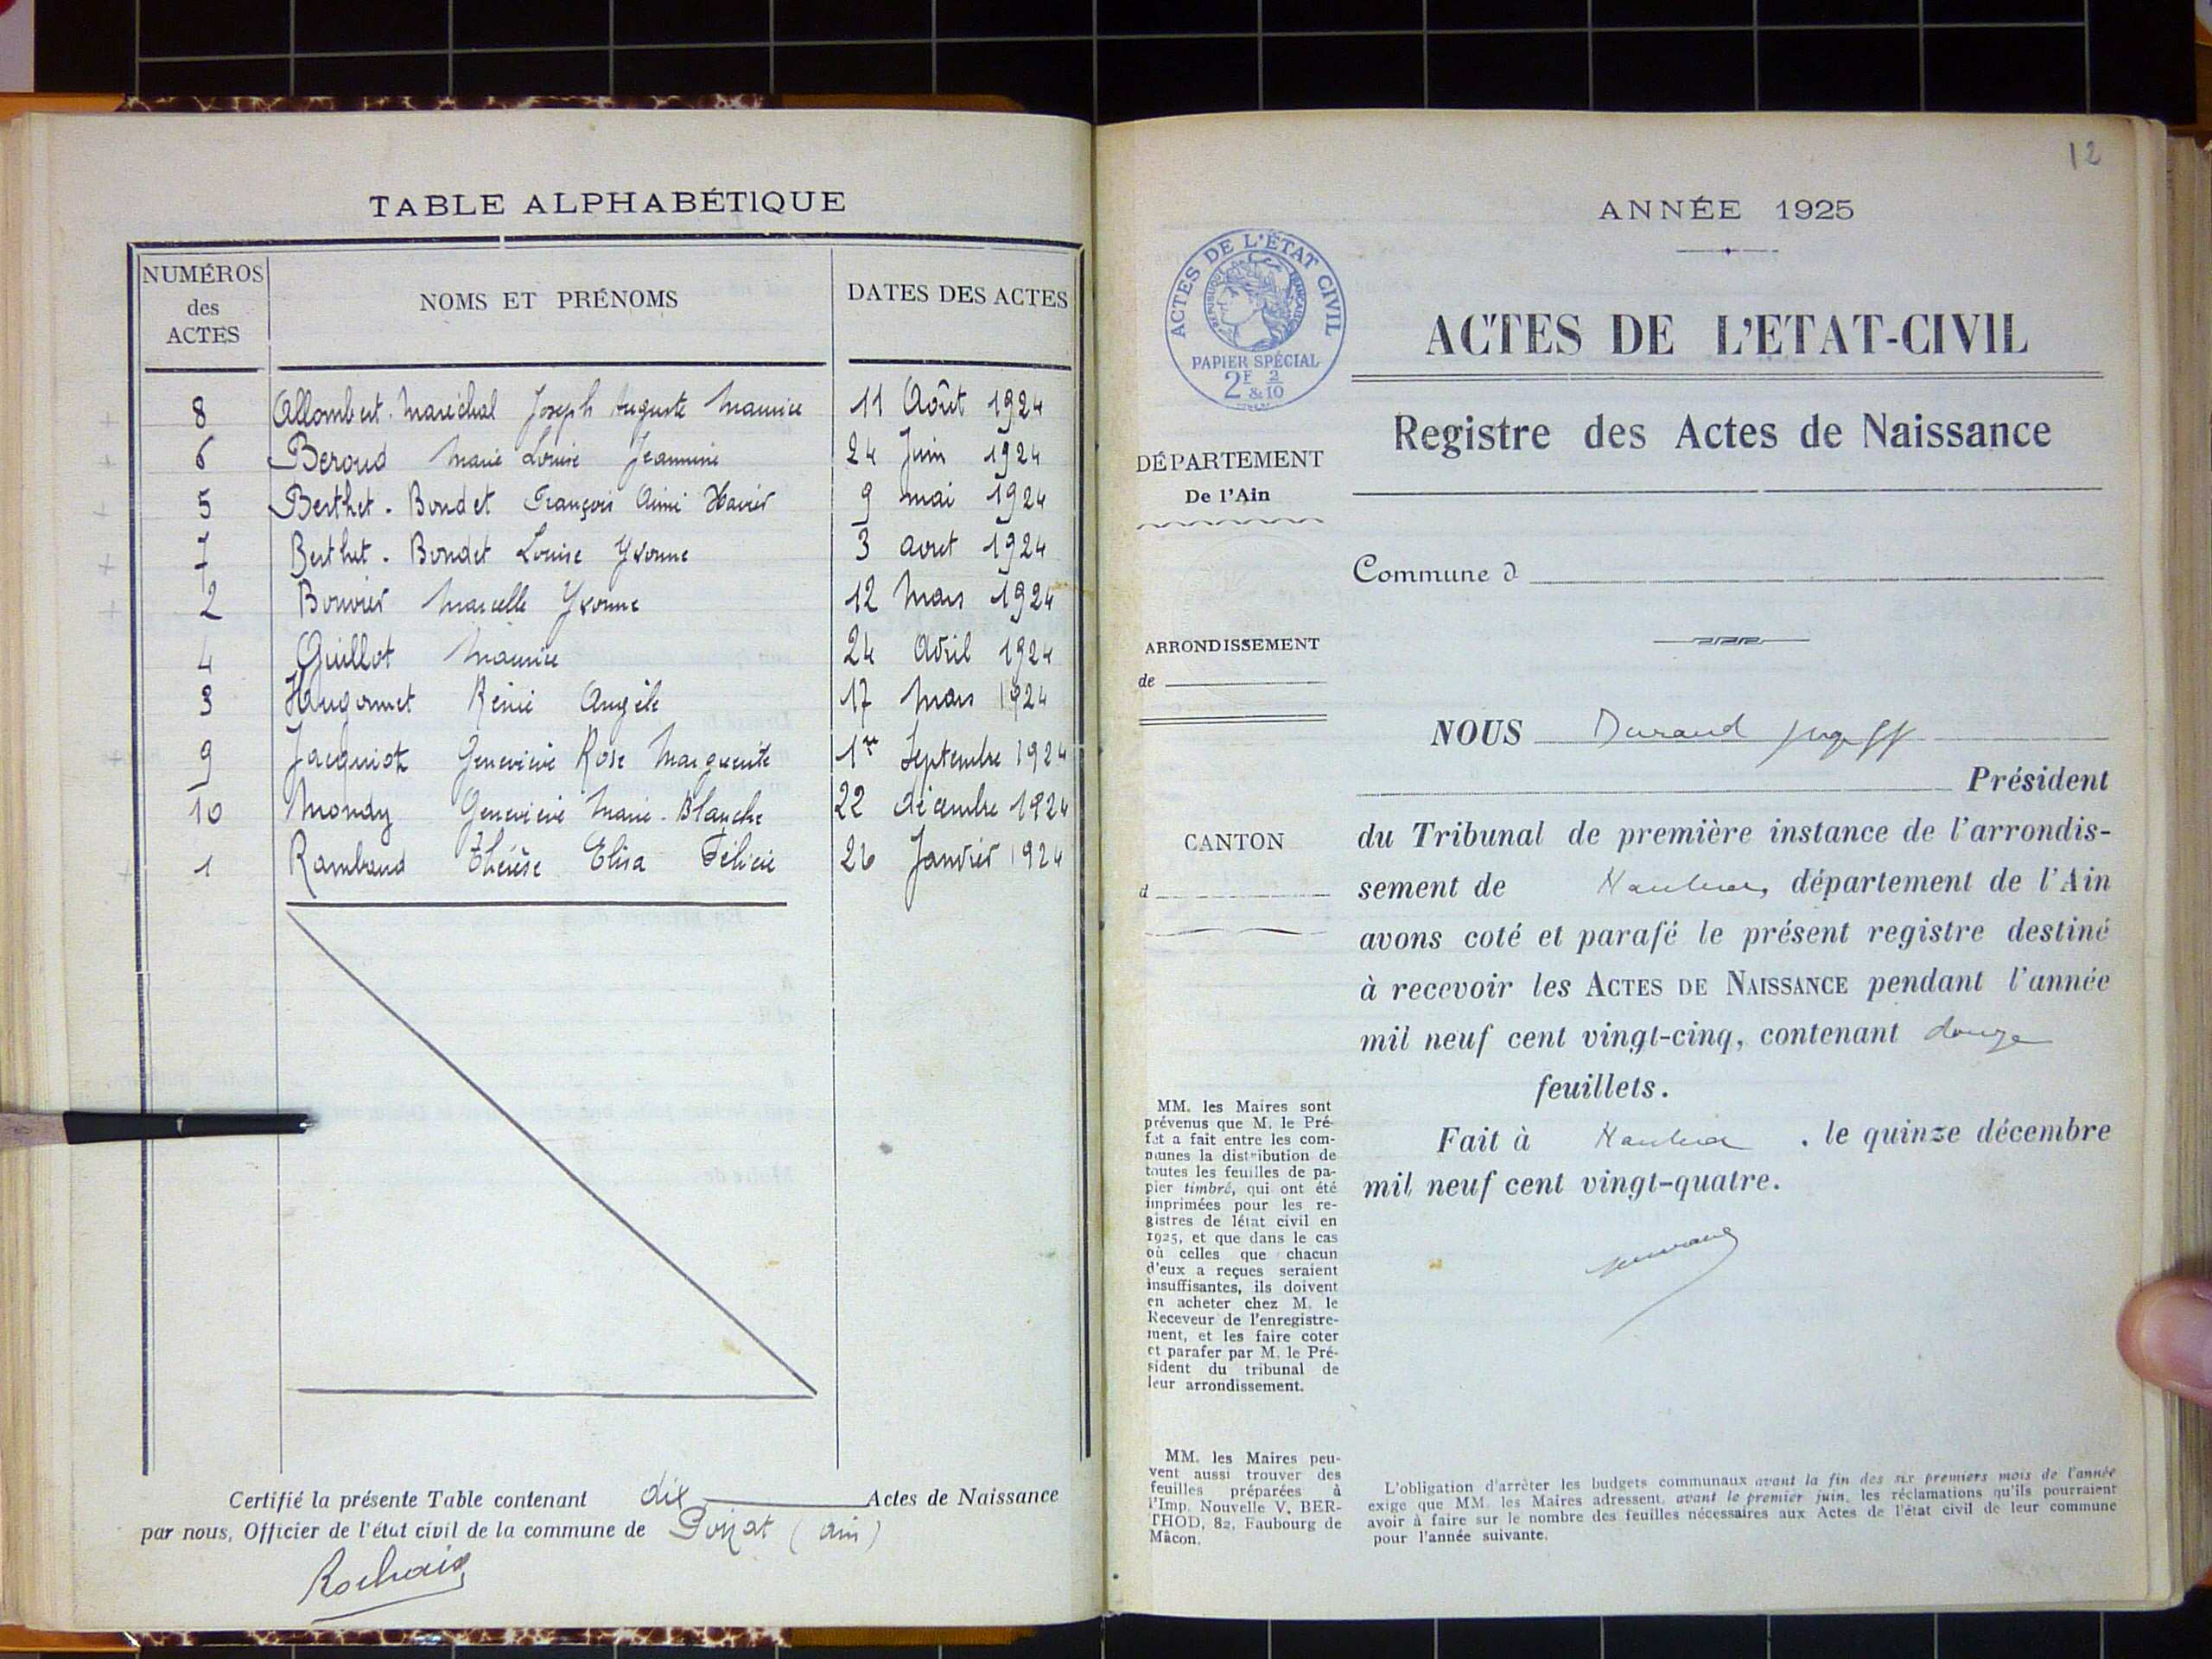 TABLE ALPHABÉTIQUE
NUMÉROS des ACTES
NOMS ET PRÉNOMS
DATES DES ACTES
8 Allombert-Maréchal Joseph Auguste Maurice 11 Août 1924
6 Beroud Marie Louise Jeannine 24 Juin 1924
5 Berthet-Bondet François Aimé Xavier 9 mai 1924
7 Berthet-Bondet Louise Yvonne 3 aout 1924
2 Bouvier Marcelle Yvonne 12 Mars 1924
4 Guillot Maurice 24 Avril 1924
3 Hugonnet Angèle 17 Mars 1924
9 Jacquiot Geneviève Rose Marguerite 1er Septembre 1924
10 Mondy Geneviève Marie-Blanche 22 décembre 1924
1 Rambaud Thérèse Elisa Félicie 26 Janvier 1924
Certifié la présente Table contenant dix Actes de Naissance
par nous, Officier de l'état civil de la commune de Poizat (Ain)
Rochaix
12
ANNÉE 1925
ACTES DE L'ÉTAT CIVIL
RÉPUBLIQUE FRANÇAISE
PAPIER SPÉCIAL
2F & 2/10
ACTES DE L'ETAT-CIVIL
Registre des Actes de Naissance
DÉPARTEMENT
De l'Ain
Commune d
ARRONDISSEMENT
de
CANTON
d
NOUS Durand
Président
du Tribunal de première instance de l'arrondis-
sement de Nantua, département de l'Ain
avons coté et parafé le présent registre destiné
à recevoir les ACTES DE NAISSANCE pendant l'année
mil neuf cent vingt-cinq, contenant douze
feuillets.
Fait à Nantua, le quinze décembre
mil neuf cent vingt-quatre.
Durand
MM. les Maires sont
prévenus que M. le Pré-
fet a fait entre les com-
munes la distribution de
toutes les feuilles de pa-
pier timbré, qui ont été
imprimées pour les re-
gistres de létat civil en
1925, et que dans le cas
où celles que chacun
d'eux a reçues seraient
insuffisantes, ils doivent
en acheter chez M. le
Receveur de l'enregistre-
ment, et les faire coter
et parafer par M. le Pré-
sident du tribunal de
leur arrondissement.
MM. les Maires peu-
vent aussi trouver des
feuilles préparées à
l'Imp. Nouvelle V. BER-
THOD, 82, Faubourg de
Mâcon.
L'obligation d'arrêter les budgets communaux avant la fin des six premiers mois de l'année
exige que MM. les Maires adressent, avant le premier juin, les réclamations qu'ils pourraient
avoir à faire sur le nombre des feuilles nécessaires aux Actes de l'état civil de leur commune
pour l'année suivante.